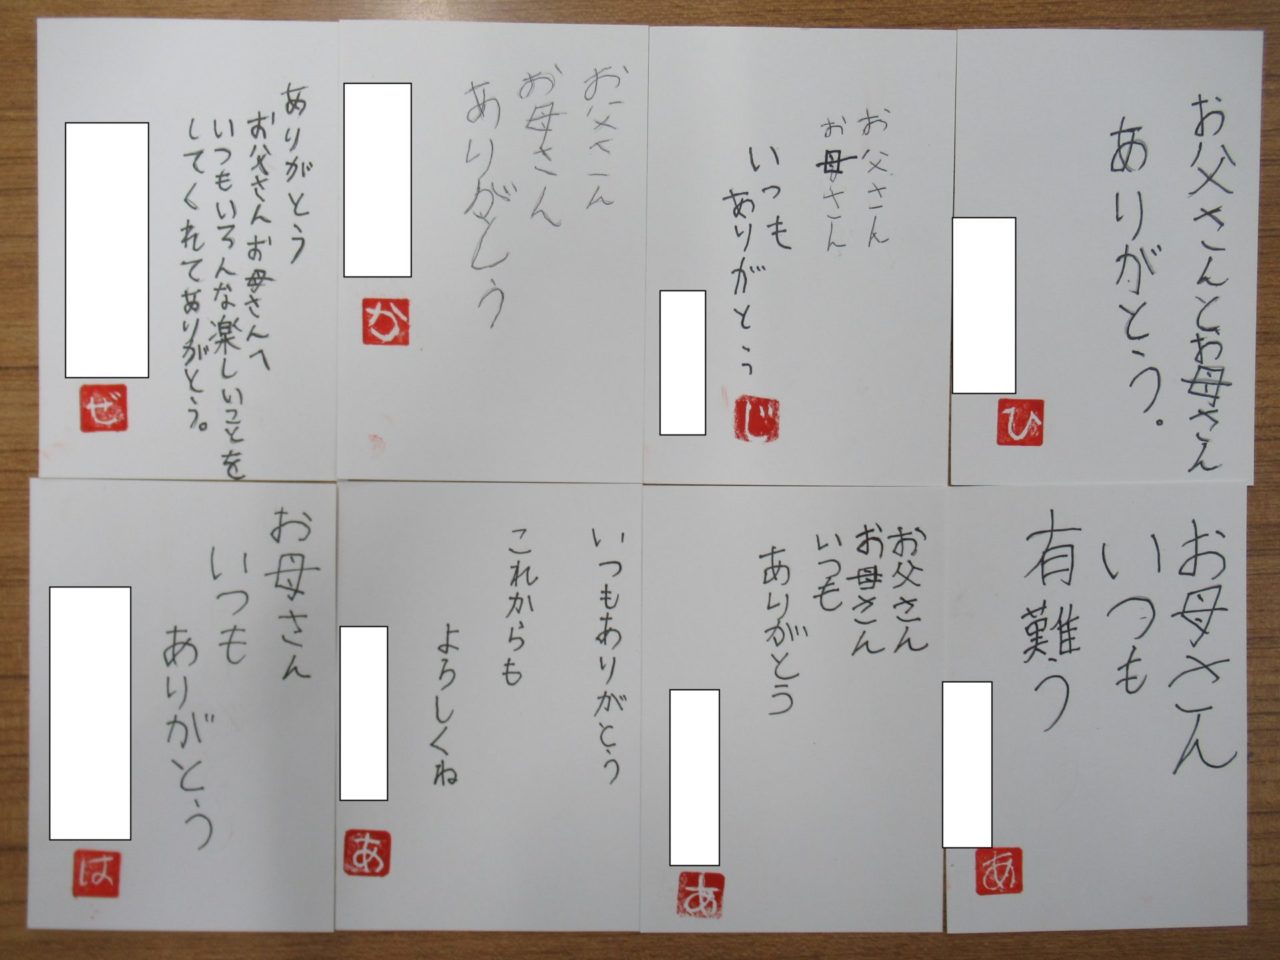 ありがとう
お父さんお母さんへ
いつもいろんな楽しいことを
してくれてありがとう。
ぜ
お父さん
お母さん
ありがとう
か
お父さん
お母さん
いつも
ありがとう
じ
お父さんとお母さん
ありがとう。
ひ
お母さん
いつも
ありがとう
は
いつもありがとう
これからも
よろしくね
あ
お父さん
お母さん
いつも
ありがとう
あ
お母さん
いつも
有難う
あ